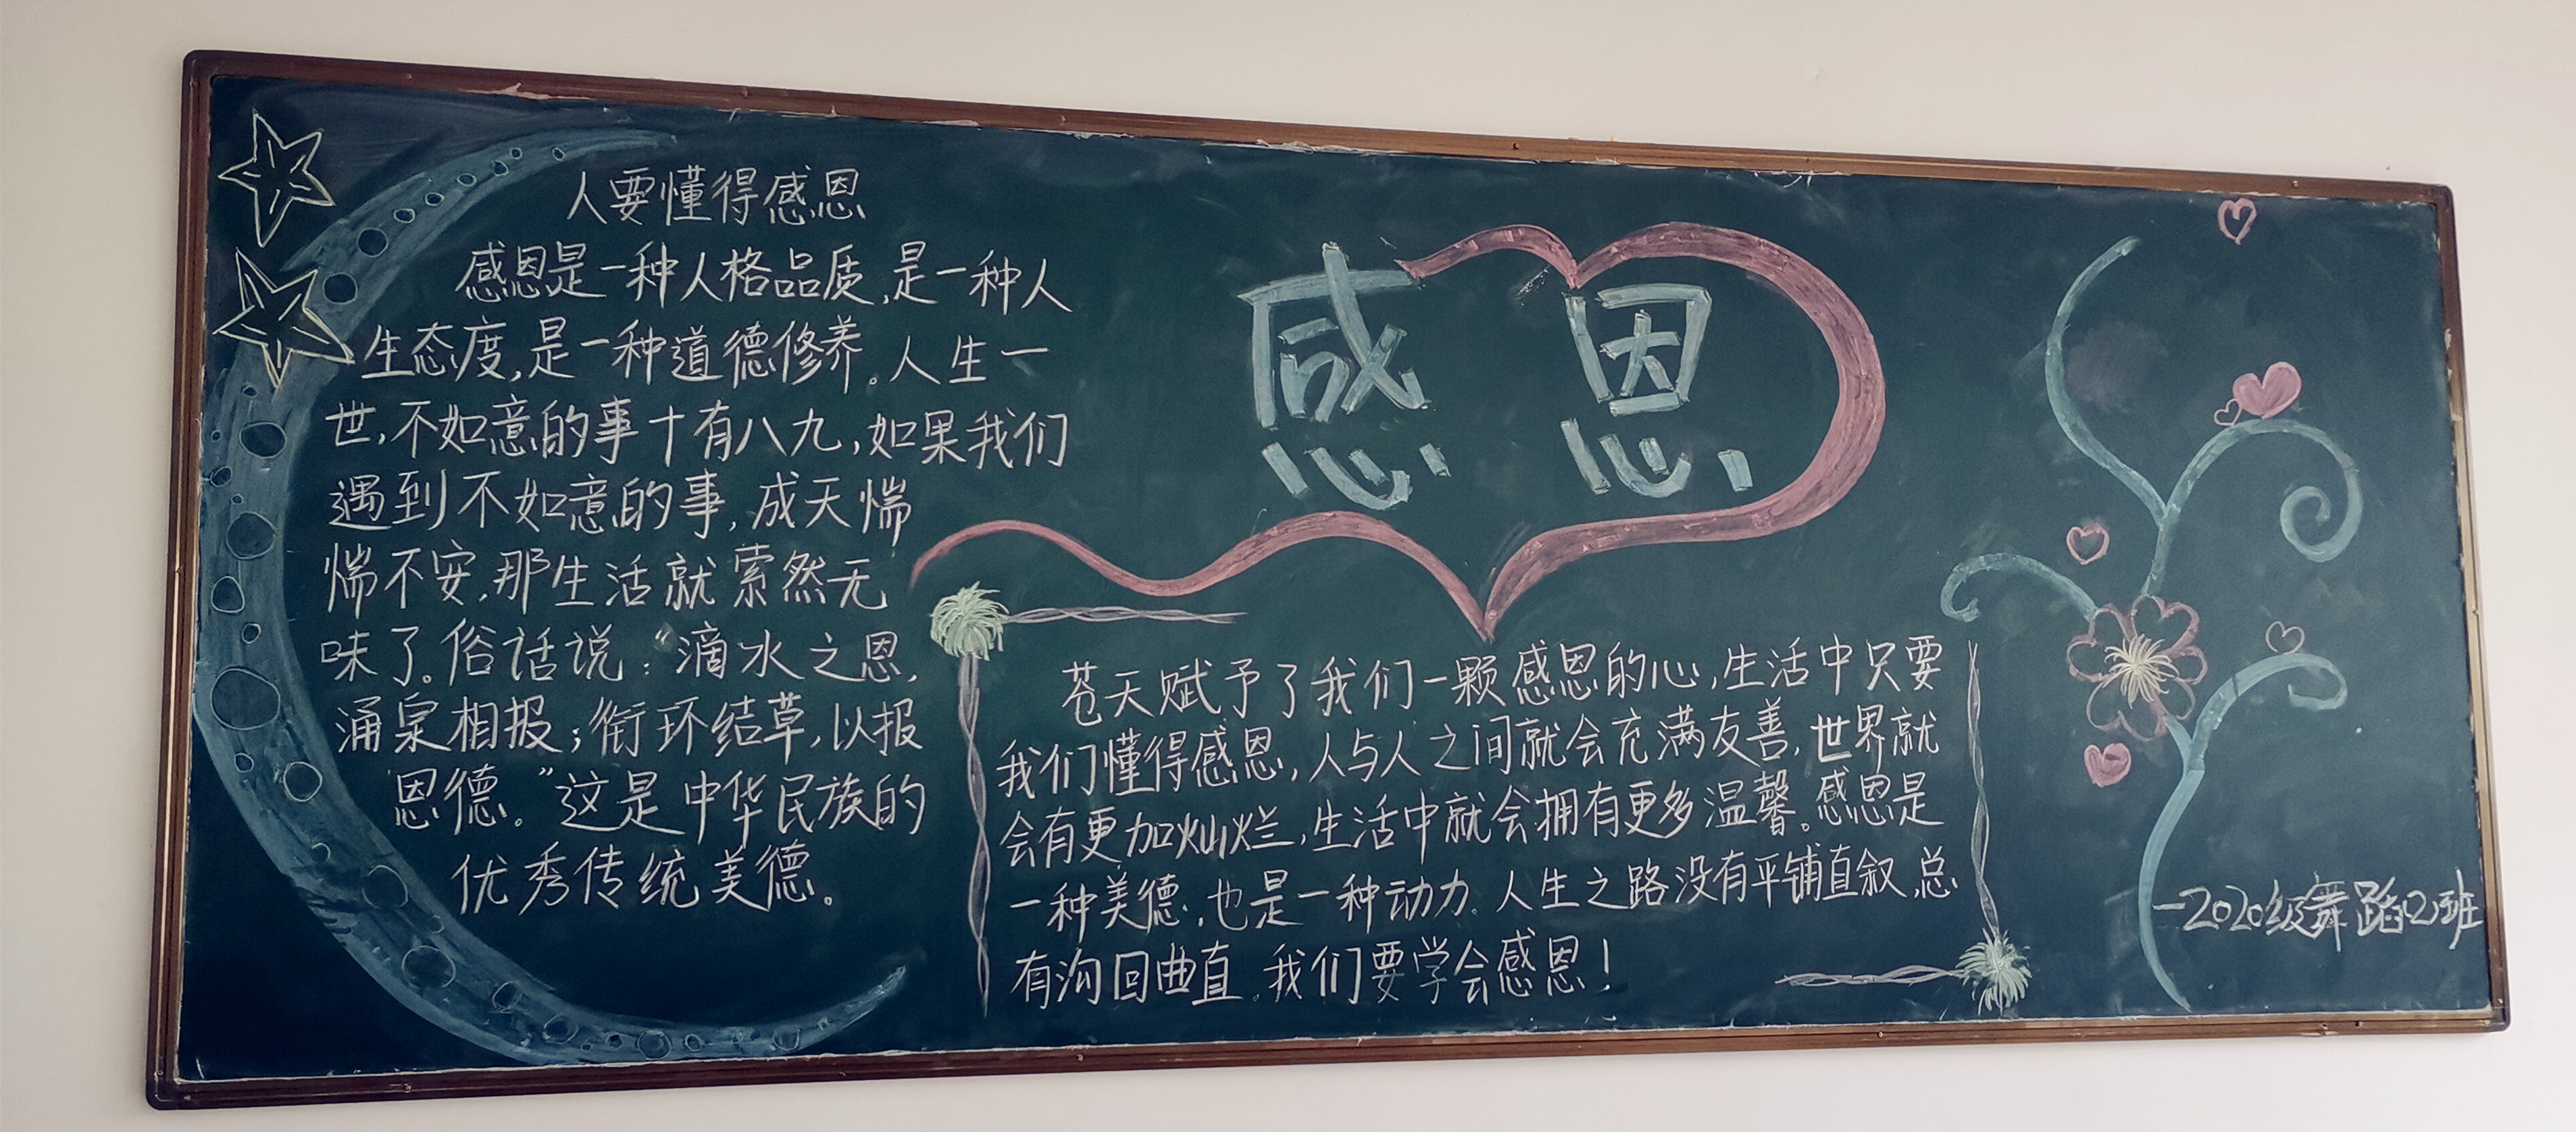 人要懂得感恩
感恩是一种人格品质,是一种人
生态度,是一种道德修养。人生一
世,不如意的事十有八九,如果我们
遇到不如意的事,成天惴
惴不安,那生活就索然无
味了。俗话说:“滴水之恩,
涌泉相报;衔环结草,以报
恩德。”这是中华民族的
优秀传统美德。
感恩
苍天赋予了我们一颗感恩的心,生活中只要
我们懂得感恩,人与人之间就会充满友善,世界就
会有更加灿烂,生活中就会拥有更多温馨。感恩是
一种美德,也是一种动力。人生之路没有平铺直叙,总
有沟回曲直。我们要学会感恩!
一2020级舞蹈(2)班